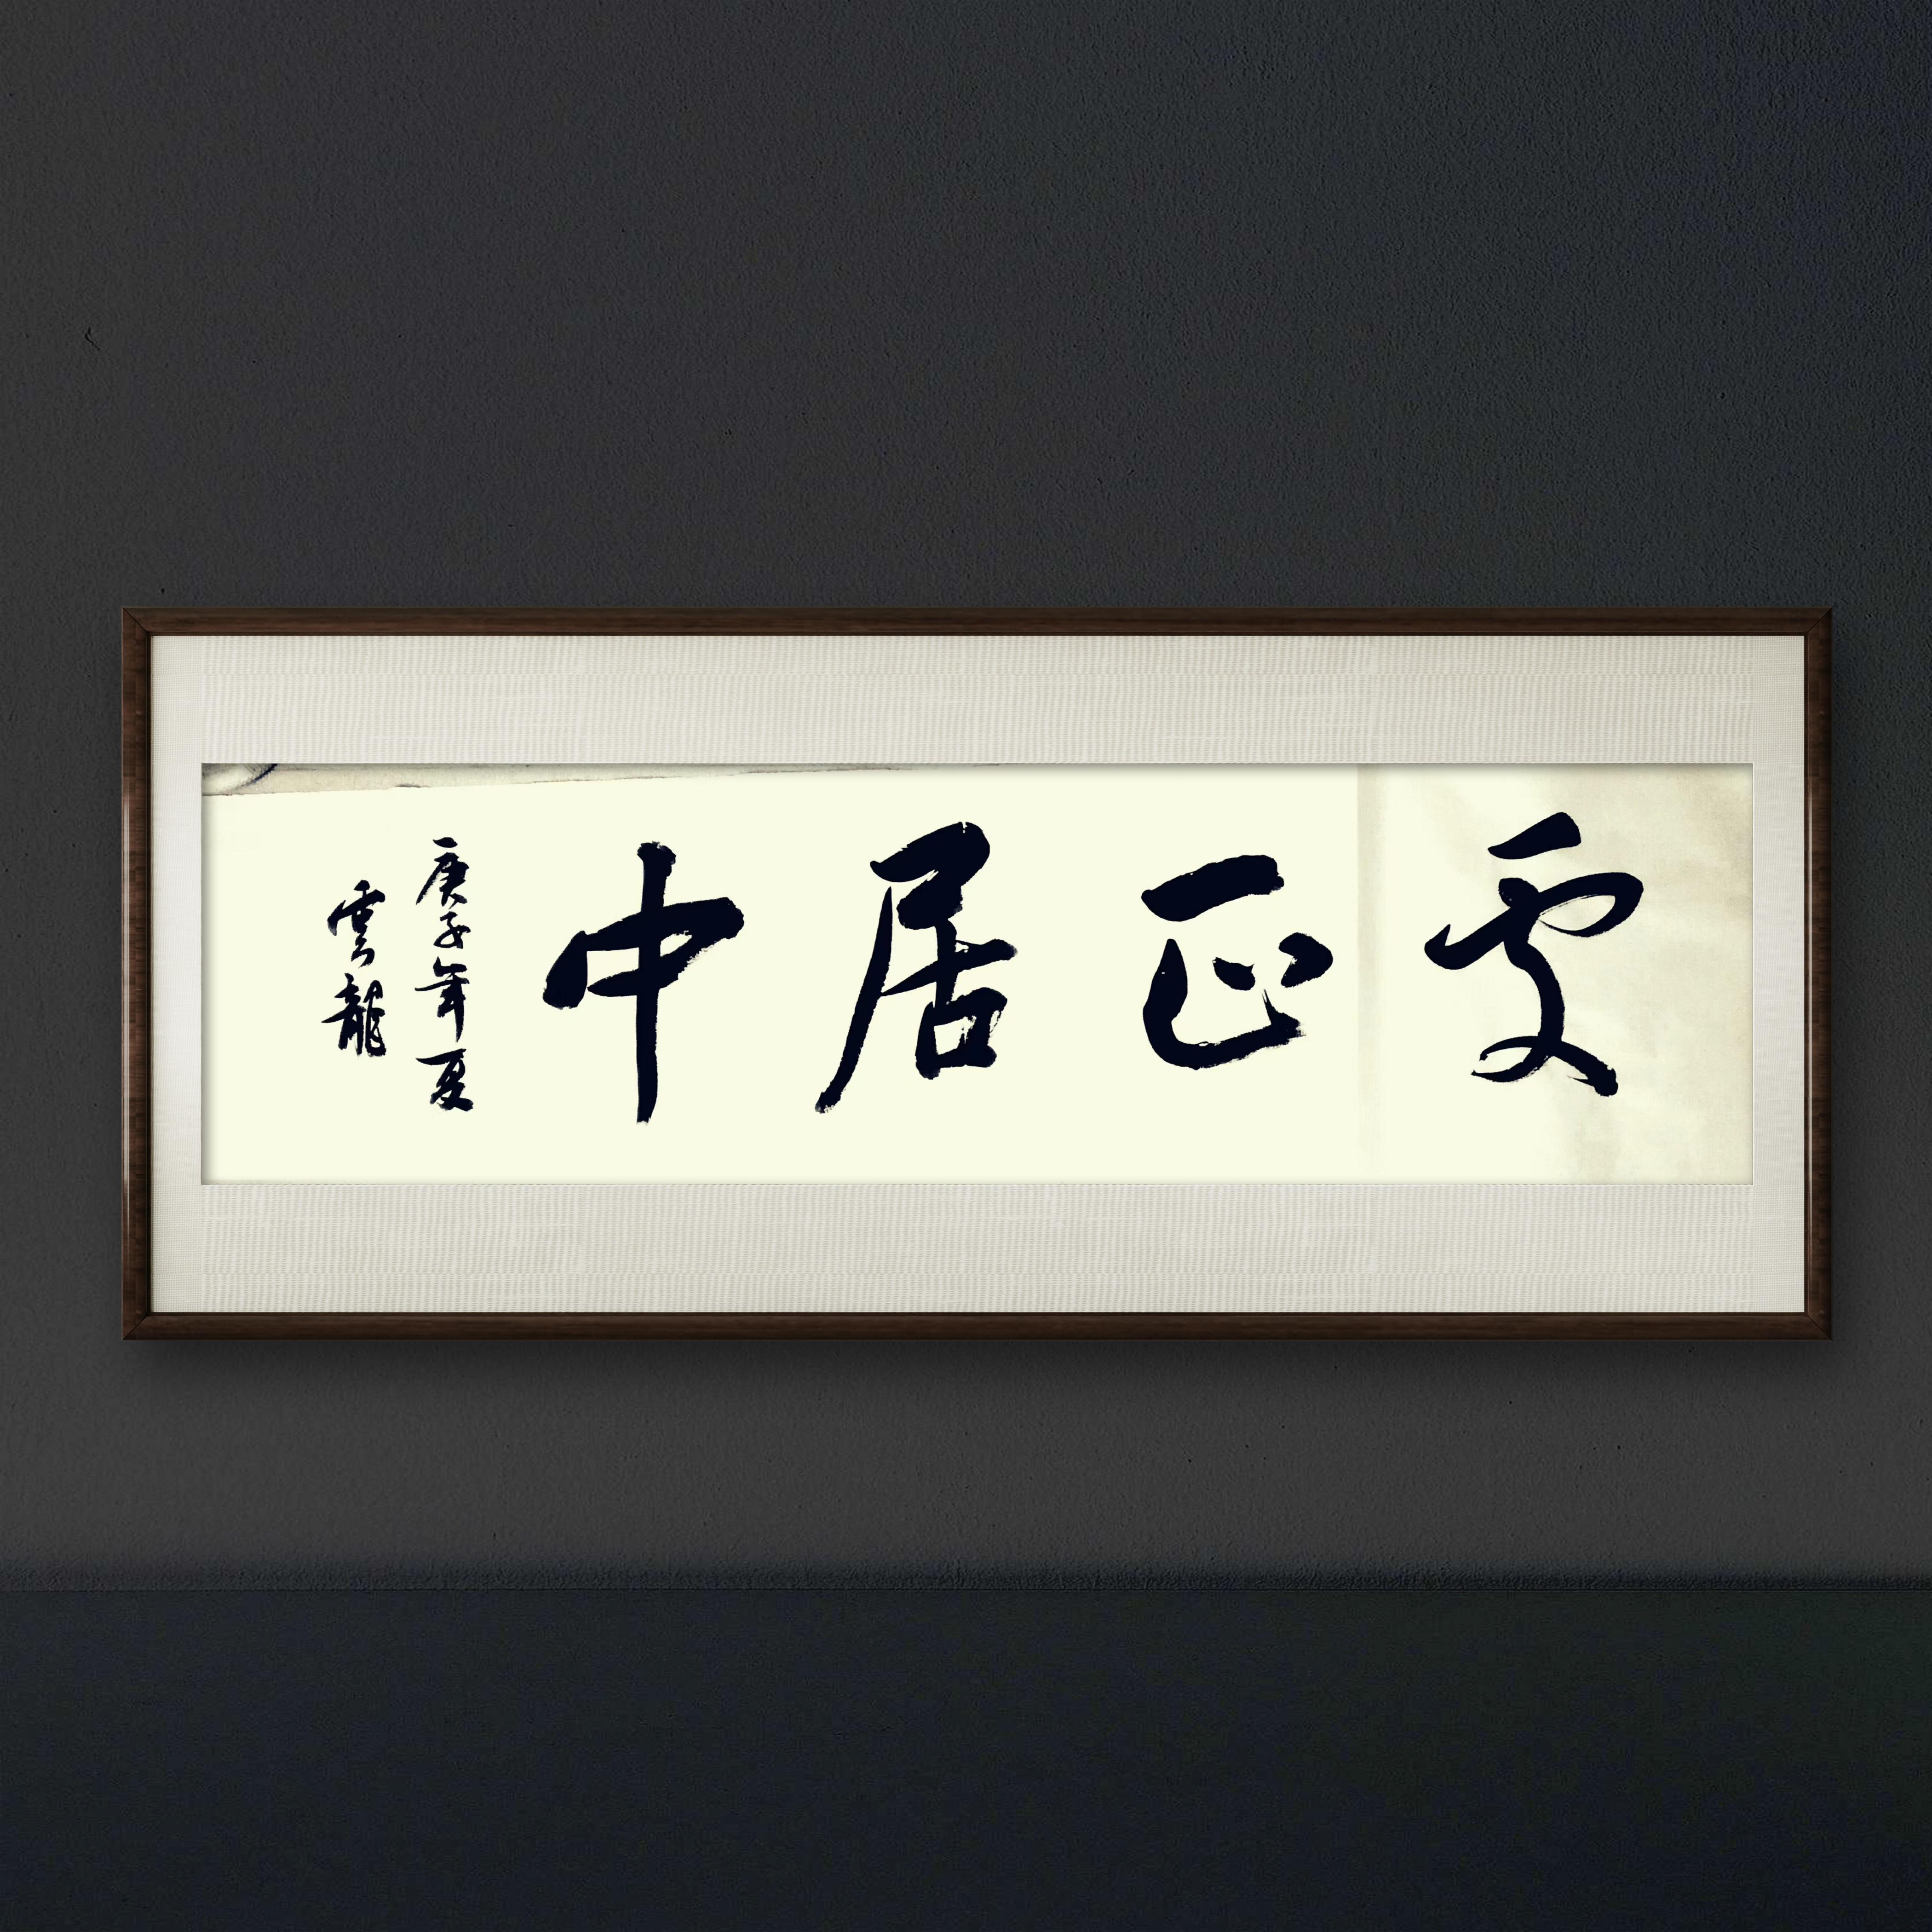 處正居中
庚子年夏
雲龍